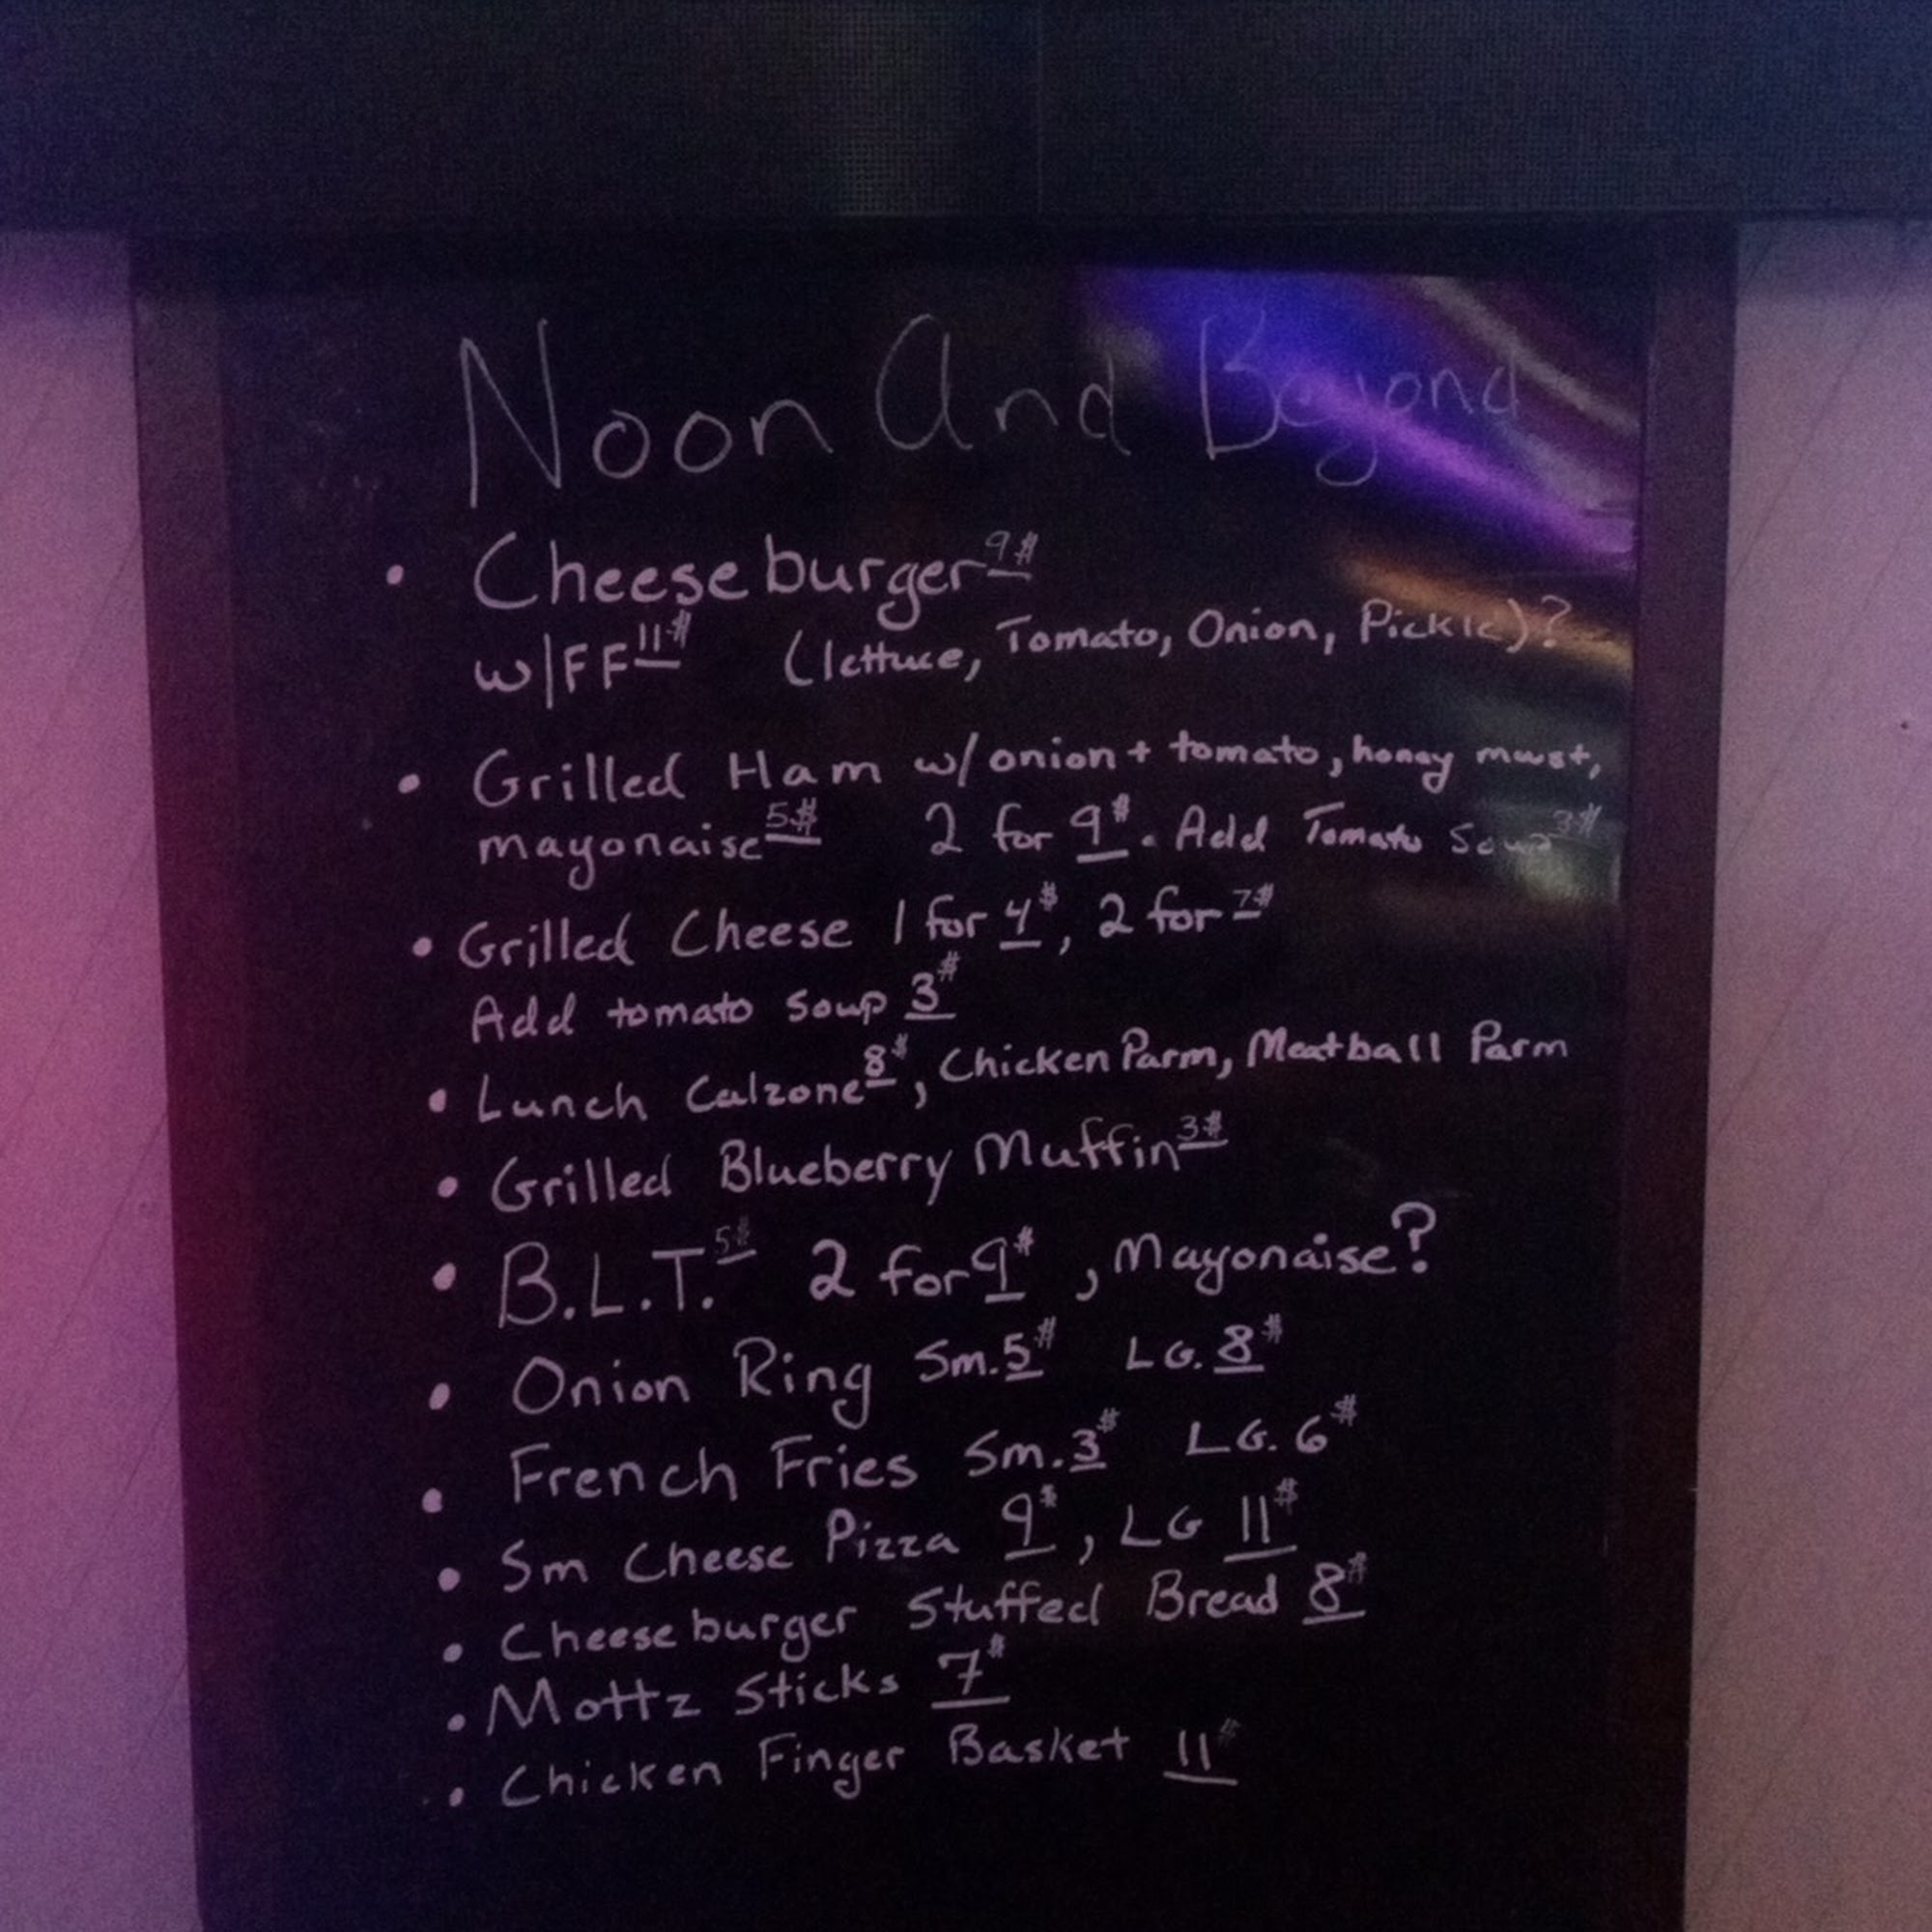 Noon And Beyond
• Cheeseburger 9#
w/FF 11# (lettuce, Tomato, Onion, Pickle)?
• Grilled Ham w/onion + tomato, honey must,
mayonaise 5# 2 for 9#. Add Tomato Soup 3#
• Grilled Cheese 1 for 4#, 2 for 7#
Add tomato soup 3#
• Lunch Calzone 8#, Chicken Parm, Meatball Parm
• Grilled Blueberry Muffin 3#
• B.L.T. 5# 2 for 9#, Mayonaise?
• Onion Ring Sm. 5# LG. 8#
• French Fries Sm. 3# LG. 6#
• Sm Cheese Pizza 9#, LG 11#
• Cheeseburger Stuffed Bread 8#
• Mottz Sticks 7#
• Chicken Finger Basket 11#